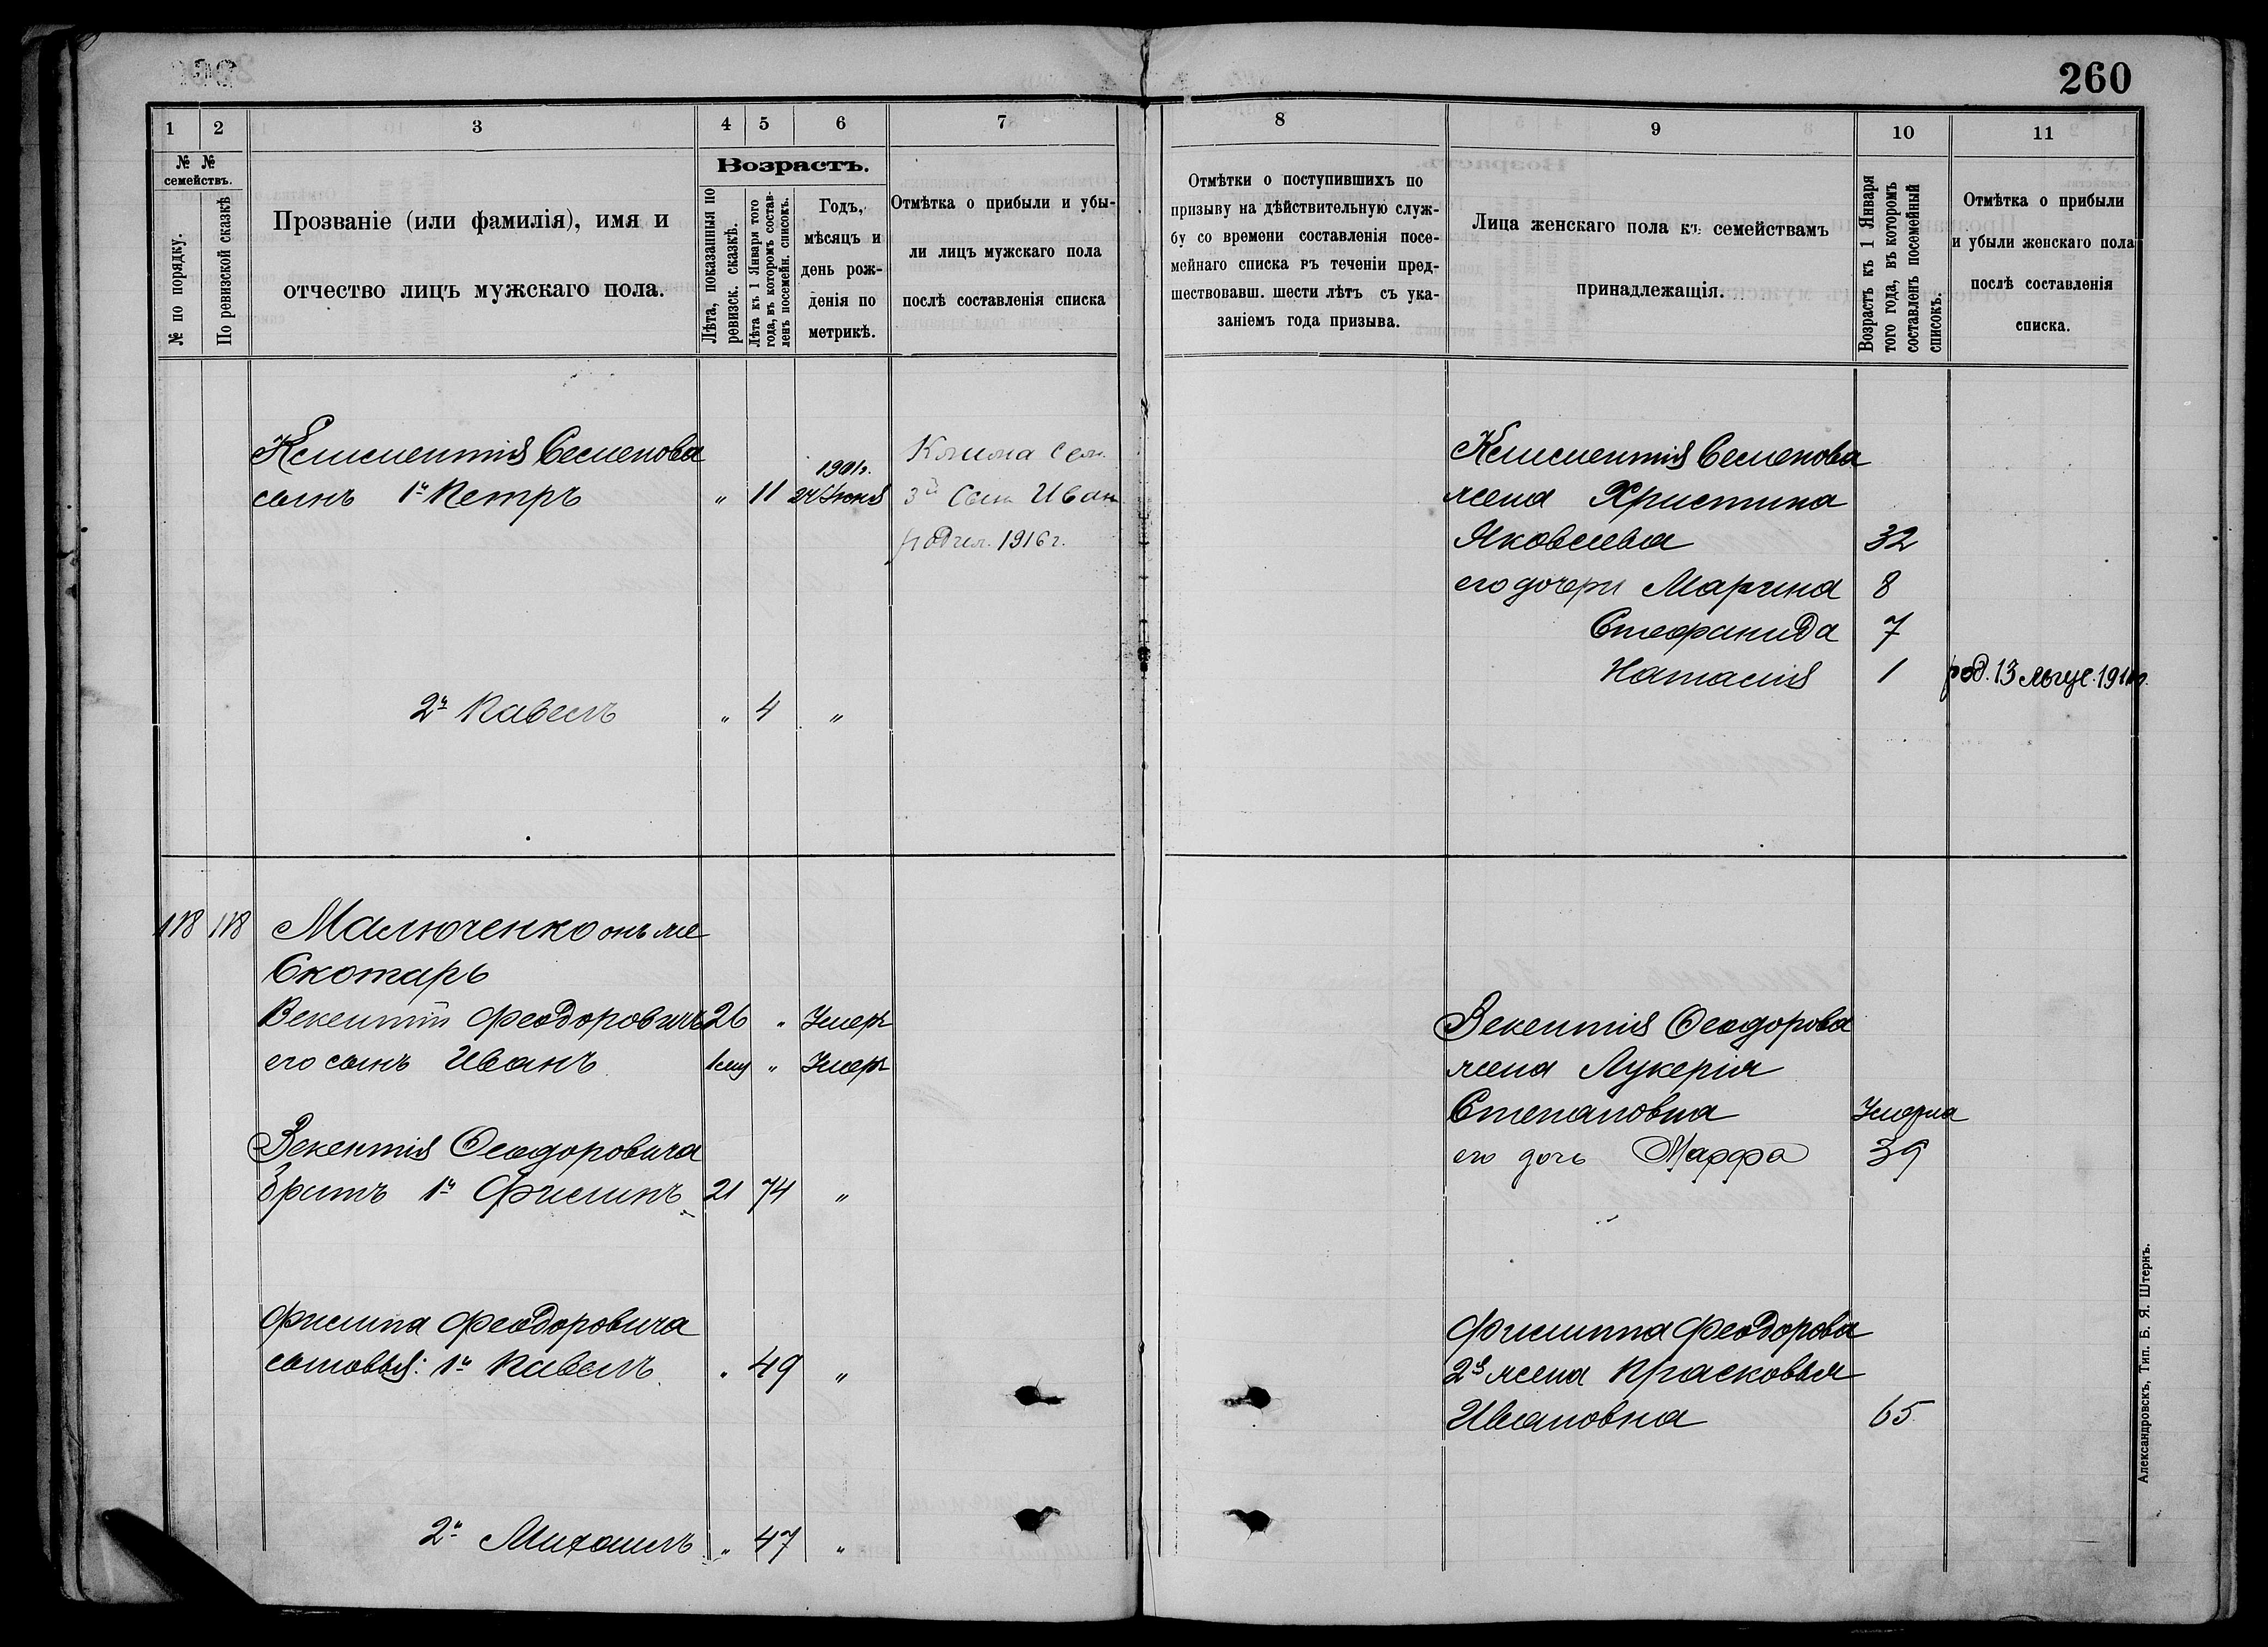 260
1 2 3 4 5 6 7
№ № семействъ.
№ по порядку.
По ревизской сказкѣ
Прозваніе (или фамилія), имя и
отчество лицъ мужскаго пола.
Возрастъ.
Лѣта, показанныя по
ревизск. сказкѣ.
Лѣта къ 1 Января того
года, въ которомъ состав-
ленъ посемейн. списокъ.
Годъ,
мѣсяцъ и
день рож-
денія по
метрикѣ.
Отмѣтка о прибыли и убы-
ли лицъ мужскаго пола
послѣ составленія списка
Климентія Семенова
сынъ 1й Петръ " 11 1901г. 24 Іюня
Клима Сем.
3й Сын Иван
родил. 1916 г.
2й Павелъ " 4 "
118 118 Малюченко онъ же
Скотарь
Векентій Феодоровичъ 26 " Умеръ
его сынъ Иванъ " Умеръ
Векентія Ѳеодоровича
братъ 1й Филипъ 21 74 "
Филипа Феодоровича
сыновья: 1й Павелъ " 49 "
2й Михаилъ " 47 "
8 9 10 11
Отмѣтки о поступившихъ по
призыву на дѣйствительную служ-
бу со времени составленія посе-
мейнаго списка въ теченіи пред-
шествовавш. шести лѣтъ съ ука-
заніемъ года призыва.
Лица женскаго пола къ семействамъ
принадлежащія.
Возрастъ къ 1 Января
того года, въ которомъ
составленъ посемейный
списокъ.
Отмѣтка о прибыли
и убыли женскаго пола
послѣ составленія
списка.
Климентія Семенова
жена Христина
Яковлева 32
его дочери Марина 8
Стефанида 7
Наталія 1 род. 13 Авгус.
Векентія Ѳеодорова
жена Лукерія
Степановна Умерла
его дочь Марфа 39
Филиппа Феодорова
2я жена Прасковья
Ивановна 65
Александровскъ, Тип. Б. Я. Штернъ.